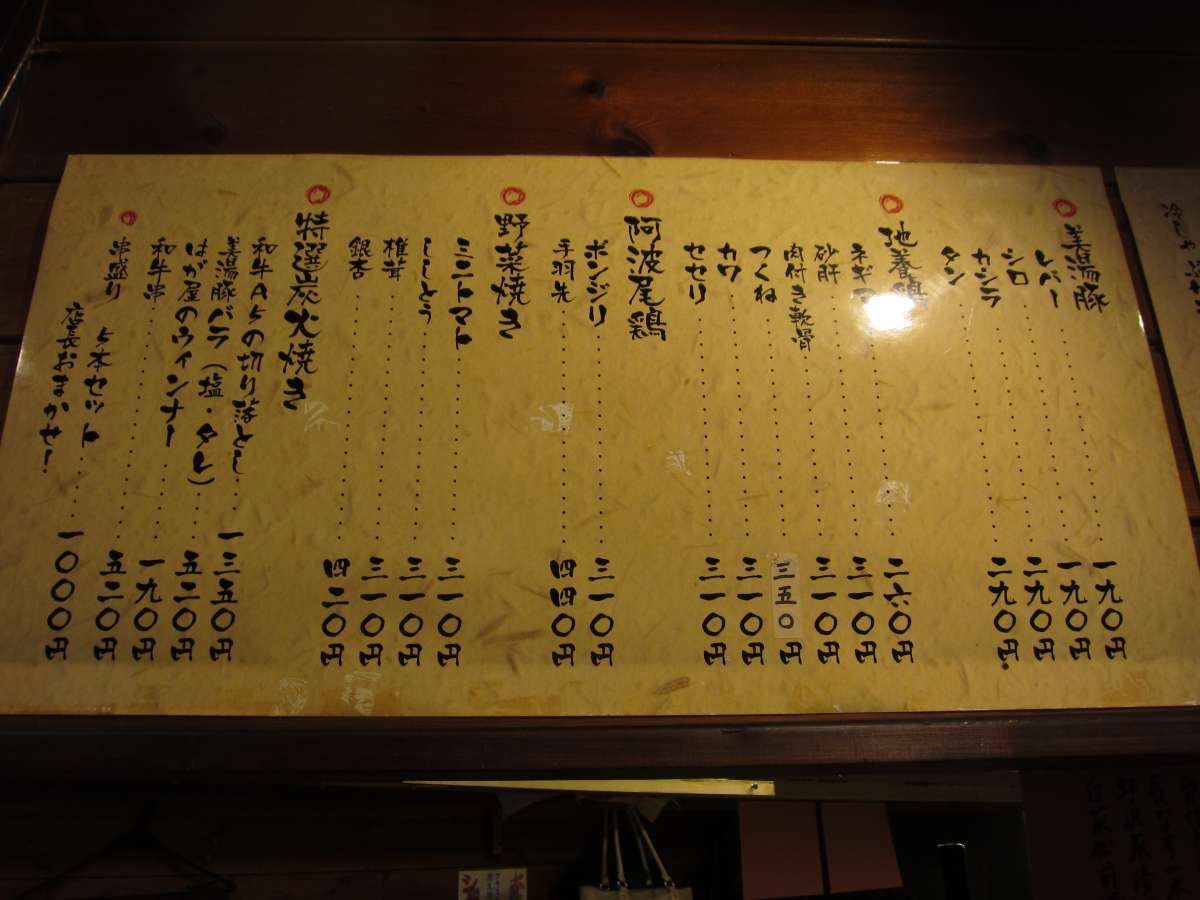 美湯豚
レバー………一九〇円
シロ………一九〇円
カシラ………二九〇円
タン………二九〇円
地養鶏
ネギマ………二六〇円
砂肝………三一〇円
肉付き軟骨………三一〇円
つくね………三五〇円
カワ………三一〇円
セセリ………三一〇円
阿波尾鶏
ボンジリ………三一〇円
手羽先………四四〇円
野菜焼き
ミニトマト………三一〇円
ししとう………三一〇円
椎茸………三一〇円
銀杏………四二〇円
特選炭火焼き
和牛A5の切り落とし……一三五〇円
美湯豚バラ(塩・タレ)……五二〇円
はが屋のウインナー……一九〇円
和牛串………五二〇円
串盛り 5本セット
店長おまかせ!……一〇〇〇円